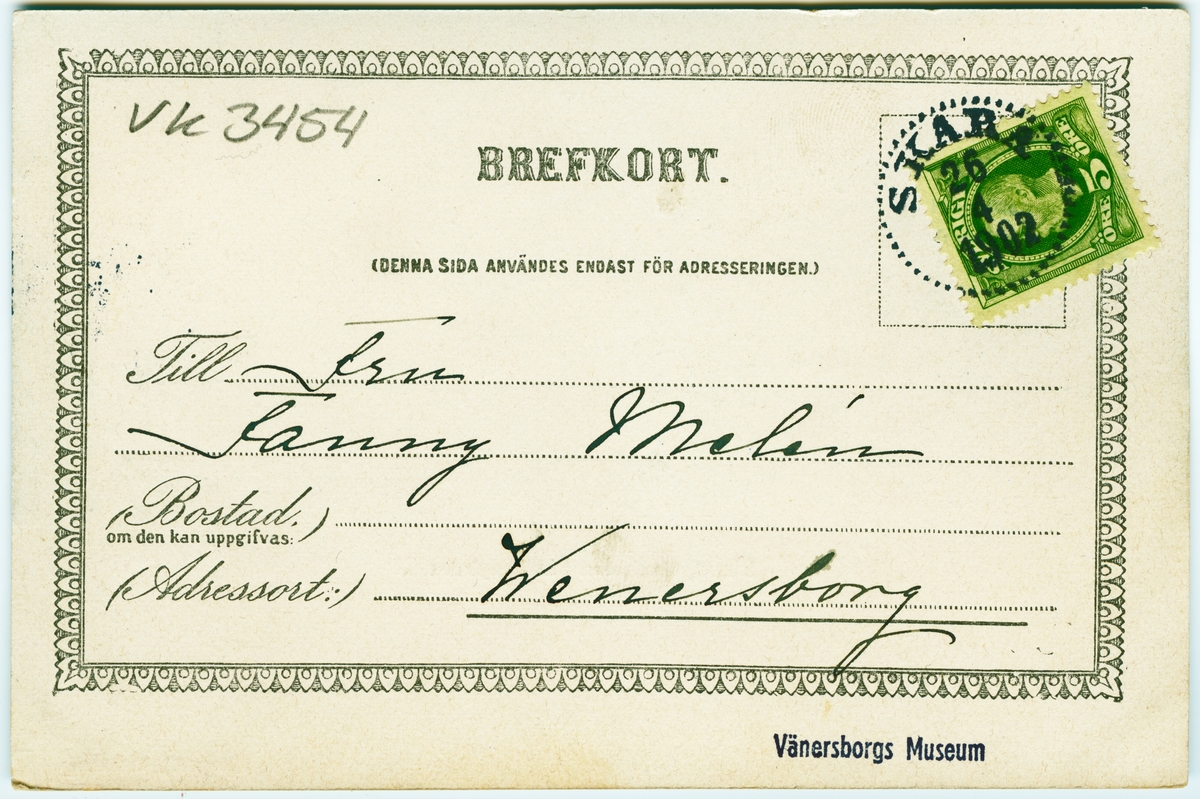 Vk 3454
BREFKORT.
SKARA
26 4
1902
5 ÖRE
(DENNA SIDA ANVÄNDES ENDAST FÖR ADRESSERINGEN.)
Till Fru
Fanny Melén
(Bostad.)
om den kan uppgifvas:
(Adressort:) Wenersborg
Vänersborgs Museum